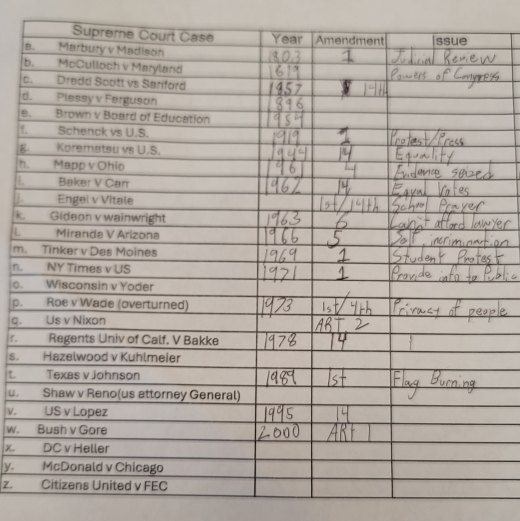 Supreme Court Case Year Amendment Issue
a. Marbury v Madison 1803 1 Judicial Review
b. McCulloch v Maryland 1819 Powers of Congress
c. Dredd Scott vs Sanford 1957 14th
d. Plessy v Ferguson 1896
e. Brown v Board of Education 1954
f. Schenck vs U.S. 1919 1 Protest/Press
g. Korematsu vs U.S. 1944 14 Equality
h. Mapp v Ohio 1961 4 Evidence seized
i. Baker v Carr 1962 14 Equal Votes
j. Engel v Vitale 1st/14th School Prayer
k. Gideon v wainwright 1963 6 Can't afford lawyer
l. Miranda V Arizona 1966 5 Self incrimination
m. Tinker v Des Moines 1969 1 Student Protest
n. NY Times v US 1971 1 Provide info to Public
o. Wisconsin v Yoder
p. Roe v Wade (overturned) 1973 1st/4th Privacy of people
q. Us v Nixon ART 2
r. Regents Univ of Calf. V Bakke 1978 14
s. Hazelwood v Kuhlmeier
t. Texas v Johnson 1989 1st Flag Burning
u. Shaw v Reno(us attorney General)
v. US v Lopez 1995 14
w. Bush v Gore 2000 ART 1
x. DC v Heller
y. McDonald v Chicago
z. Citizens United v FEC